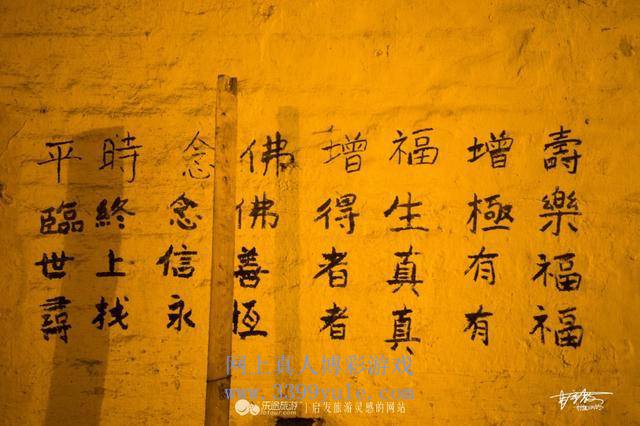 平時念佛增福增壽
臨終念佛得生極樂
世上信善者真有福
尋找永恆者真有福
网上真人博彩游戏
www.3399yule.com
乐途旅游 | 启发旅游灵感的网站
lotour.com